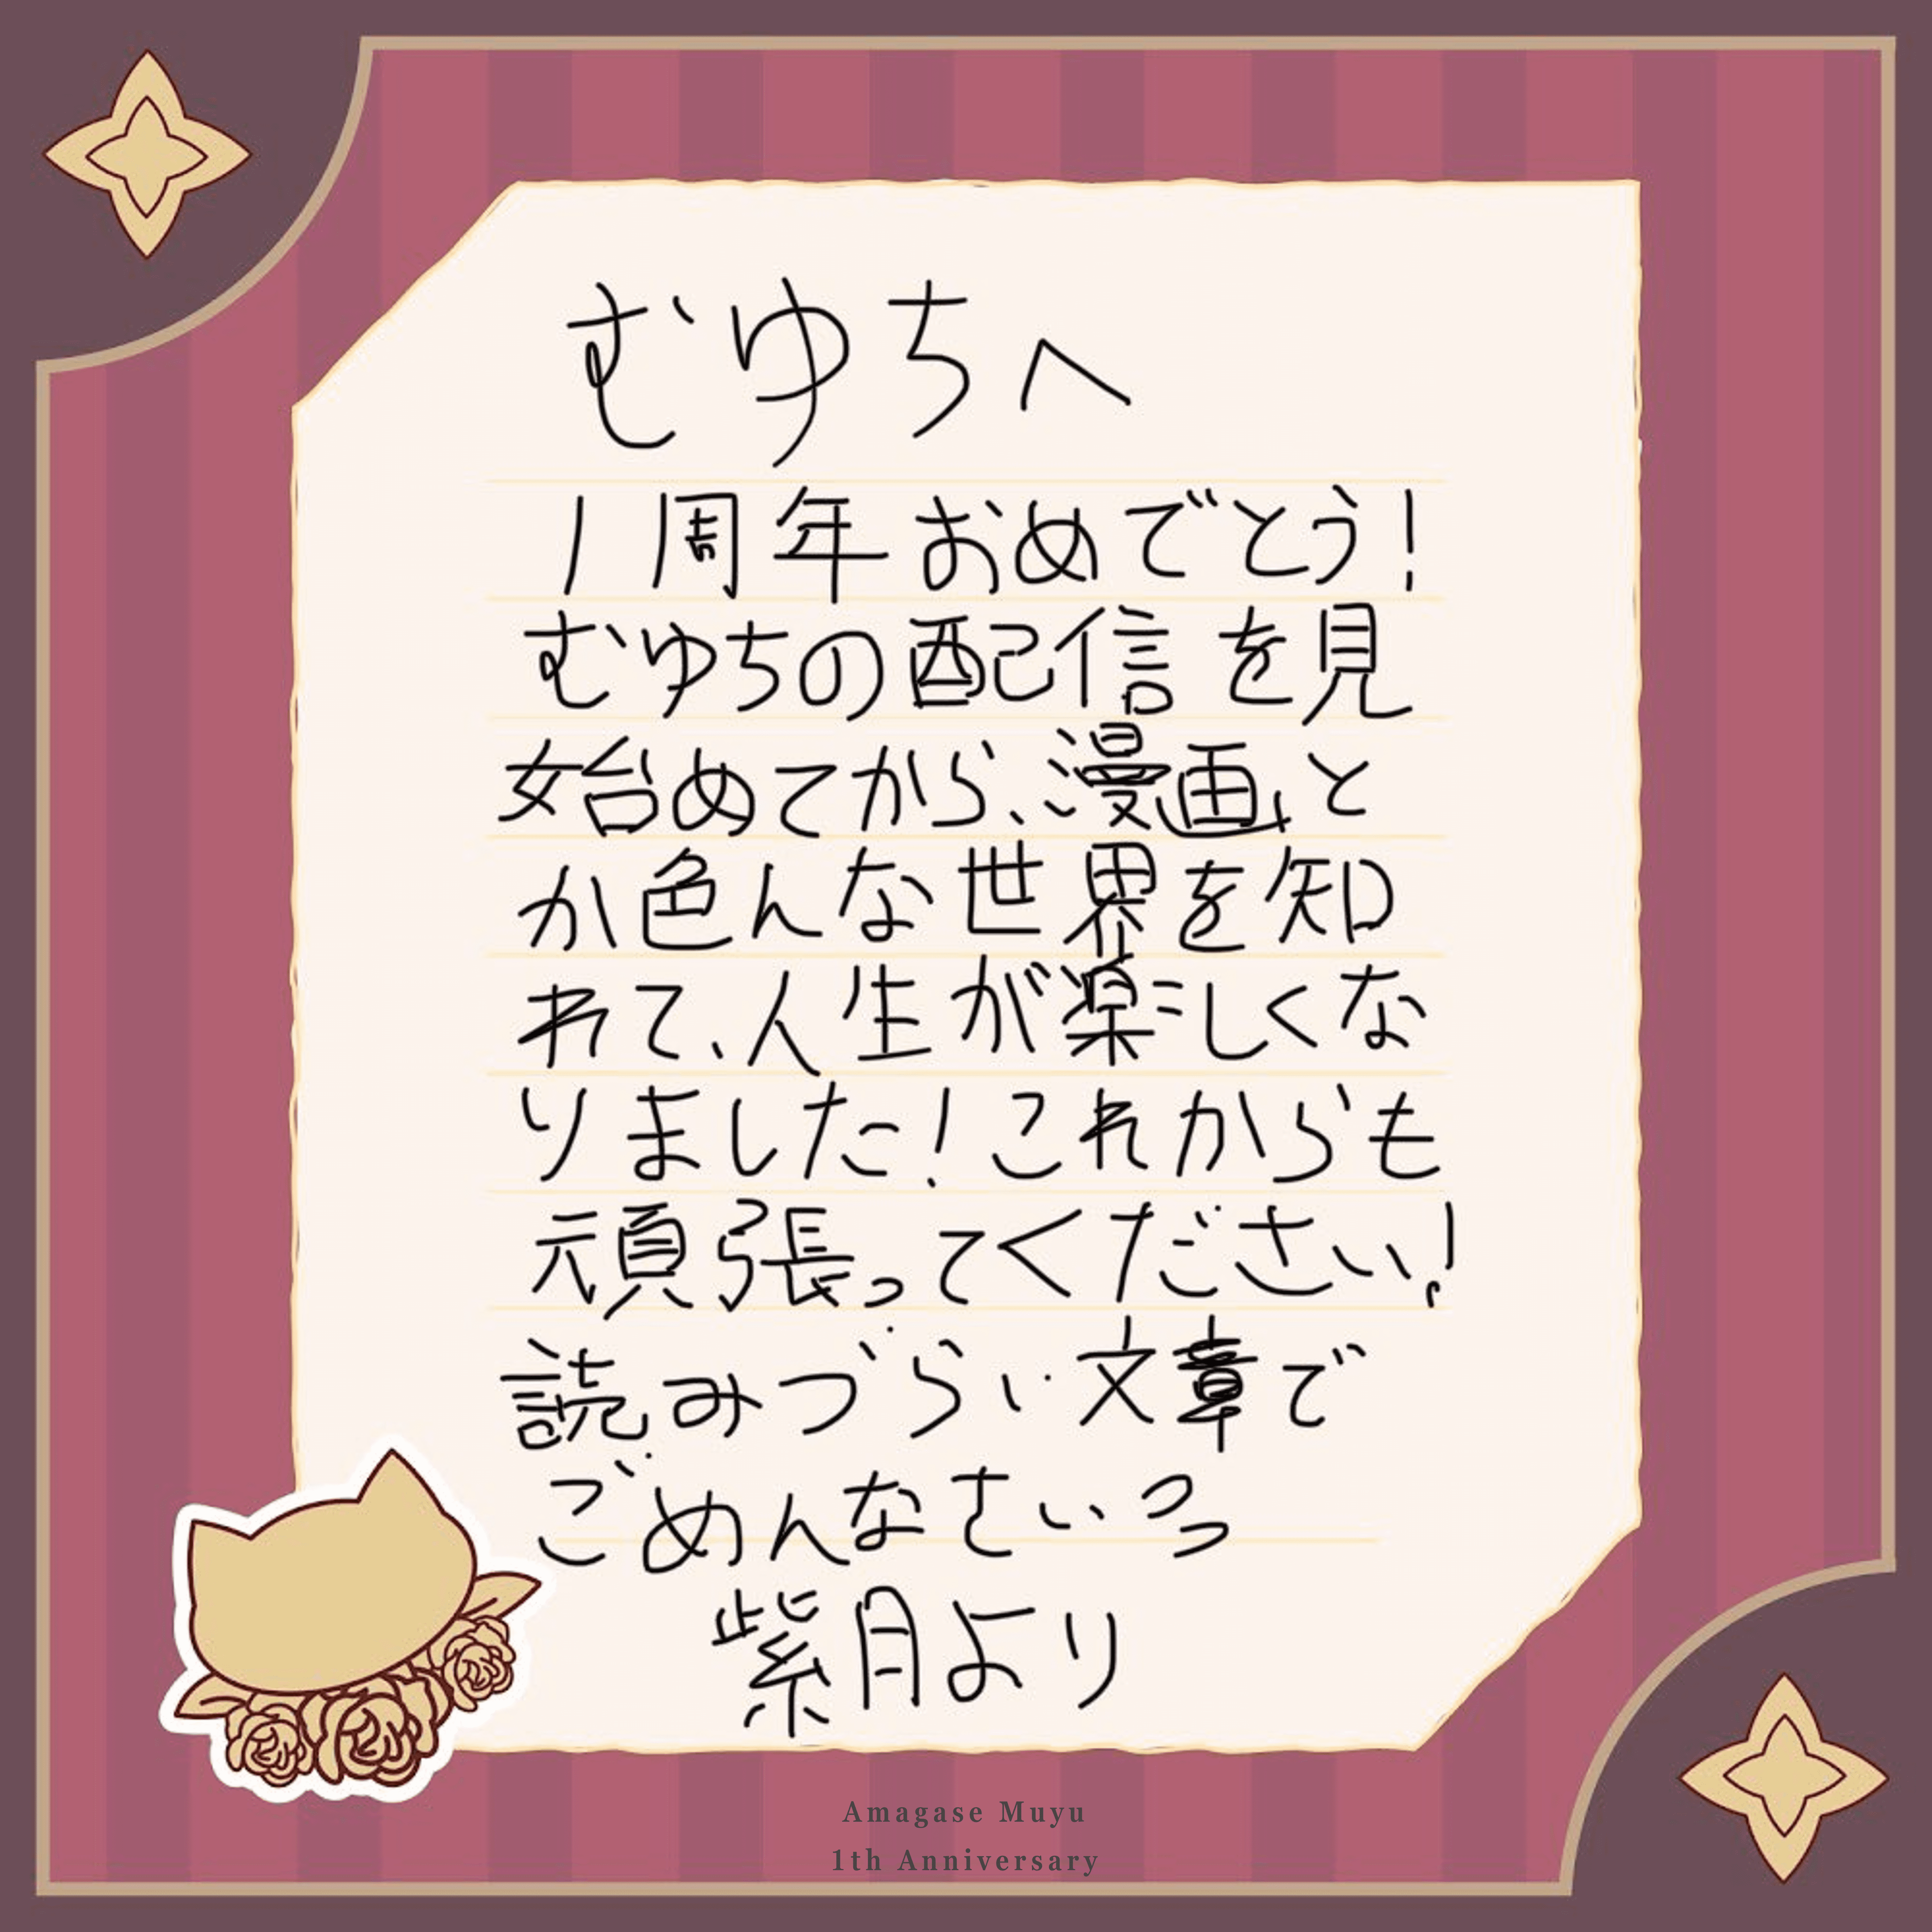 むゆちへ
1周年おめでとう!
むゆちの配信を見
始めてから、漫画と
か色んな世界を知
れて、人生が楽しくな
りました!これからも
頑張ってください!
読みづらい文章で
ごめんなさい
紫月より
Amagase Muyu
1th Anniversary